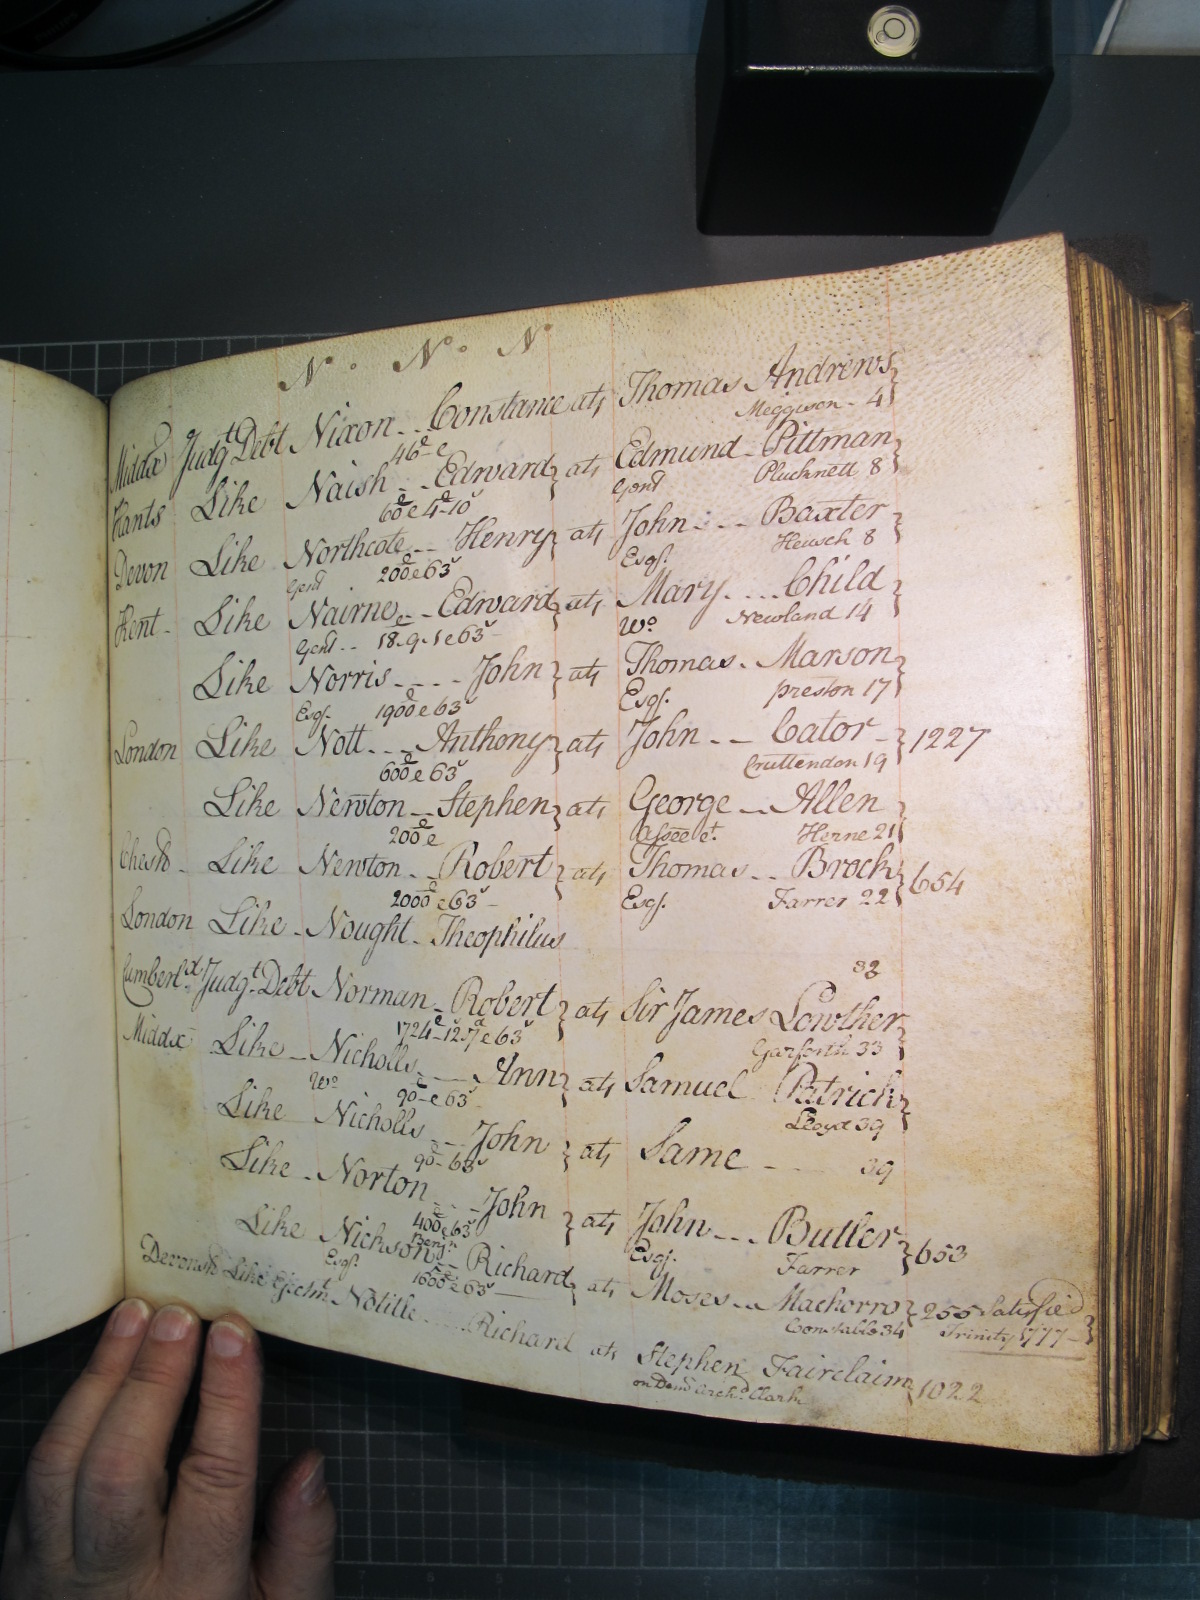 N° . N° . N°
Middx Judgt Debt Nixon -- Constance ats Thomas Andrews
46£ e Meggison - 4
Hants Like Naish -- Edward ats Edmund Pittman
60£ e 4-10s Gent Plucknett 8
Devon Like Northcote -- Henry ats John --- Baxter
Gent 200£ e 63s Esqr. Heusch 8
Kent - Like Nairne -- Edward ats Mary .... Child
Gent -- 18-9-1 e 63s Wo Newland 14
Like Norris ---- John ats Thomas . Marson
Esqr. 1900£ e 63s Esqr. Preston 17
London Like Nott --- Anthony ats John -- Cator - 1227
600£ e 63s Cruttenden 19
Like Newton -- Stephen ats George -- Allen
200£ e Assee et. Herne 21
Chesh - Like Newton -- Robert ats Thomas -- Brock 654
2000£ e 63s - Esqr. Farrer 22
London Like - Nought - Theophilus
32
Cumberld Judgt Debt Norman - Robert ats Sir James Lowther
1724£-12s-7d e 63s Garforth 33
Middx Like - Nicholls --- Ann ats Samuel Patrick
Wo 90£- e 63s Lloyd 39
Like Nicholls -- John ats Same --- 39
90£- 63s
Like - Norton --- John ats John --- Butler 653
400£ e 63s Esqr. Farrer
Like Nickson -- Benjn Richard ats Moses -- Machorro 255 Satisfied
Esqr. 1600£ e 63s Constable 34 Trinity 1777
Devonsh Like Ejectmt Notille ..... Richard ats Stephen Fairclaim 1022
on Demd Archd Clark